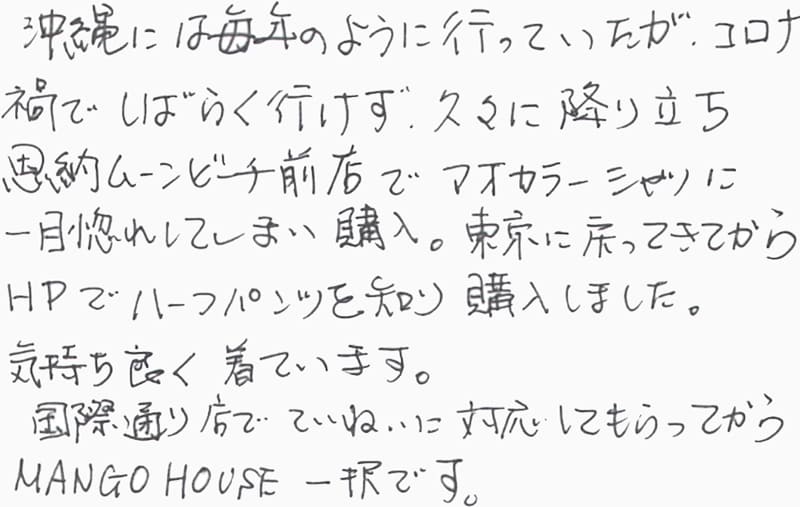 沖縄には毎年のように行っていたが、コロナ
禍でしばらく行けず、久々に降り立ち
恩納ムーンビーチ前店でマオカラーシャツに
一目惚れしてしまい購入。東京に戻ってきてから
HPでハーフパンツを知り購入しました。
気持ち良く着ています。
国際通り店でていねいに対応してもらってから
MANGO HOUSE 一択です。